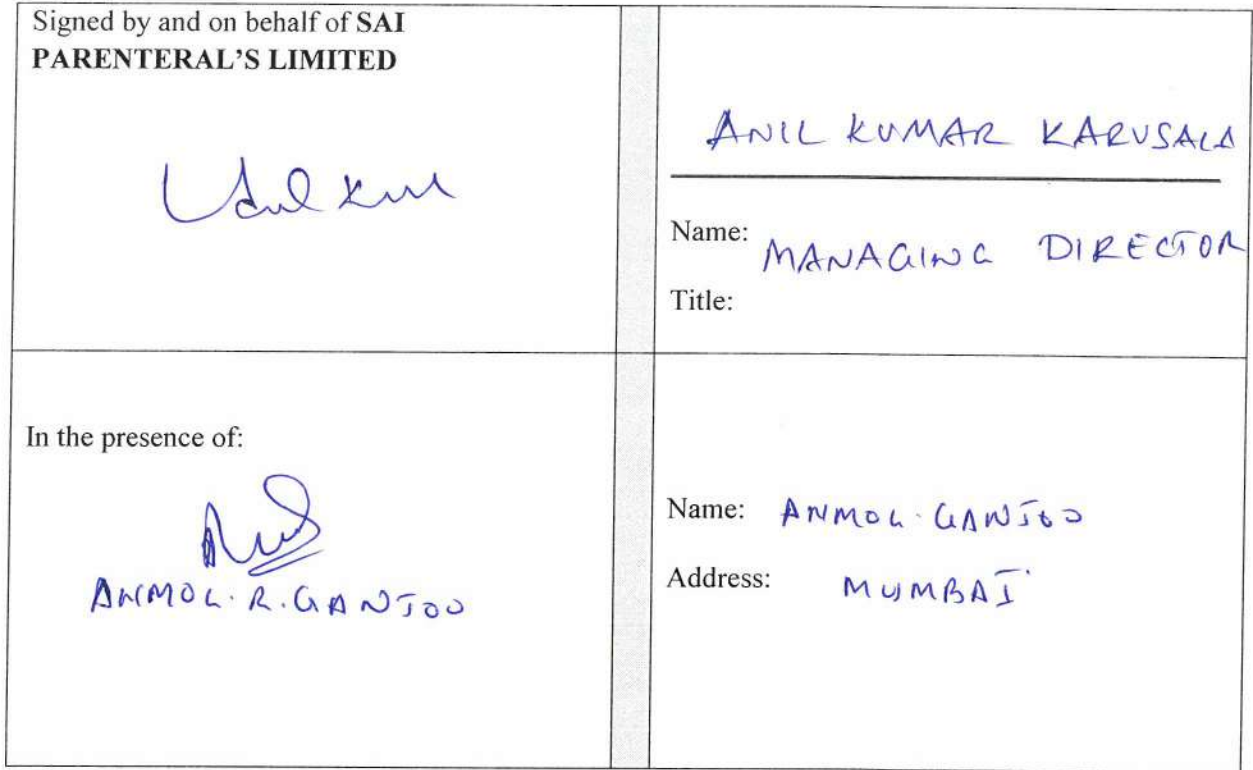 Signed by and on behalf of SAI
PARENTERAL'S LIMITED
ANIL KUMAR KARUSALA
Name:
MANAGING DIRECTOR
Title:
In the presence of:
ANMOL. R. GANJOO
Name: ANMOL. GANJOO
Address: MUMBAI